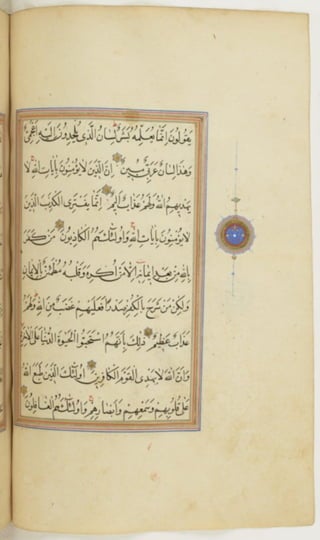 يَقُولُونَ إِنَّمَا يُعَلِّمُهُ بَشَرٌ لِسَانُ الَّذِي يُلْحِدُونَ إِلَيْهِ أَعْجَمِيٌّ
وَهَذَا لِسَانٌ عَرَبِيٌّ مُبِينٌ إِنَّ الَّذِينَ لَا يُؤْمِنُونَ بِآيَاتِ اللَّهِ لَا
يَهْدِيهِمُ اللَّهُ وَلَهُمْ عَذَابٌ أَلِيمٌ إِنَّمَا يَفْتَرِي الْكَذِبَ الَّذِينَ
لَا يُؤْمِنُونَ بِآيَاتِ اللَّهِ وَأُولَئِكَ هُمُ الْكَاذِبُونَ مَنْ كَفَرَ
بِاللَّهِ مِنْ بَعْدِ إِيمَانِهِ إِلَّا مَنْ أُكْرِهَ وَقَلْبُهُ مُطْمَئِنٌّ بِالْإِيمَانِ
وَلَكِنْ مَنْ شَرَحَ بِالْكُفْرِ صَدْرًا فَعَلَيْهِمْ غَضَبٌ مِنَ اللَّهِ وَلَهُمْ
عَذَابٌ عَظِيمٌ ذَلِكَ بِأَنَّهُمُ اسْتَحَبُّوا الْحَيَوةَ الدُّنْيَا عَلَى الْآخِرَةِ
وَأَنَّ اللَّهَ لَا يَهْدِي الْقَوْمَ الْكَافِرِينَ أُولَئِكَ الَّذِينَ طَبَعَ اللَّهُ
عَلَى قُلُوبِهِمْ وَسَمْعِهِمْ وَأَبْصَارِهِمْ وَأُولَئِكَ هُمُ الْغَافِلُونَ